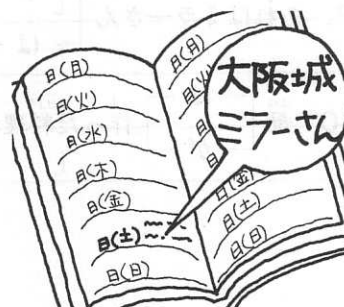 日(月)
日(火)
日(水)
日(木)
日(金)
日(土)
日(日)
日(月)
日(火
日
日
日(金)
日(土)
日(日)
大阪城
ミラーさん